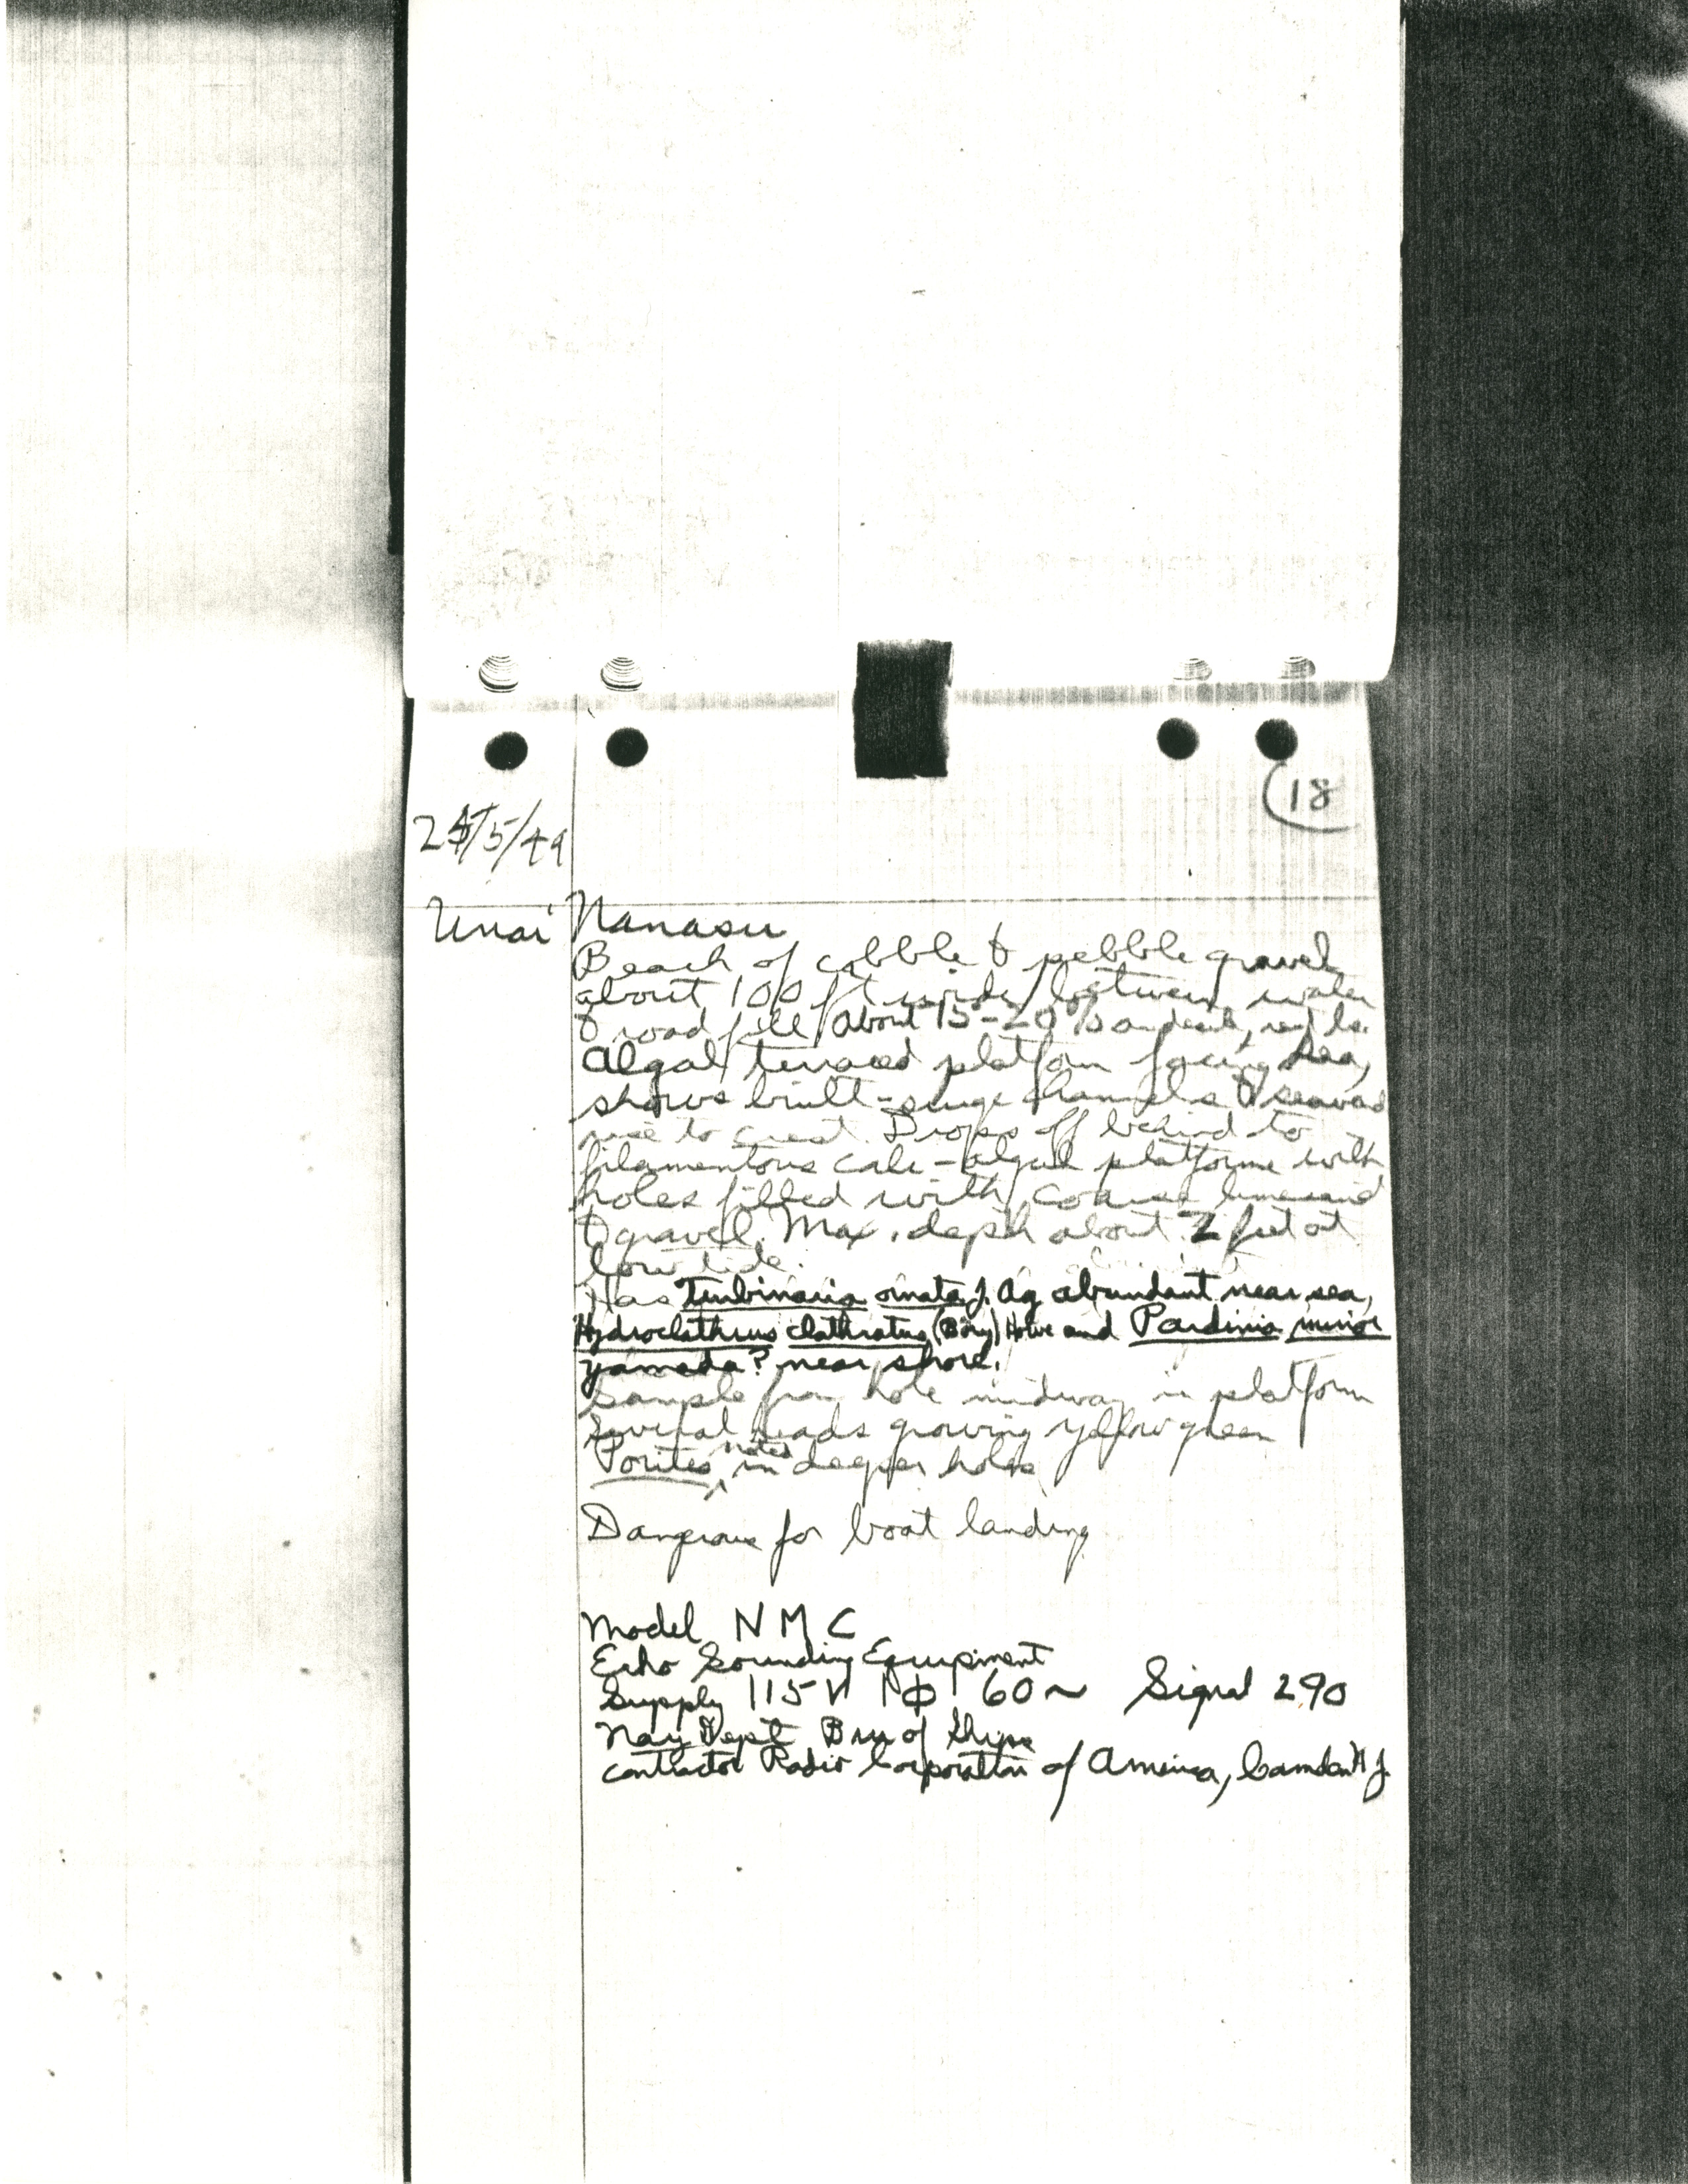 (18
25/5/49
Unai Nanasu
Beach of cobble & pebble gravel
about 100 ft wide between water
& road fill About 15-20% andesite, rest ls.
Algal terraced platform facing sea,
shows built-surge channels & seaward
rise to crest. Drops off behind to
filamentous calc-algal platform with
holes filled with coarse limesand
& gravel. Max. depth about 2 feet at
low tide.
Has Turbinaria ornata J. Ag abundant near sea,
Hydroclathrus clathratus (Bory) Howe and Pardinia minor
yamada? near shore.
Sample from hole midway in platform
Several heads growing yellow green
Porites noted in deeper holes
Dangerous for boat landing
Model NMC
Echo Sounding Equipment
Supply 115 V 1 ϕ 60~ Signal 290
Navy Dept Bu of Ships
contractor Radio Corporation of America, Camden N J.